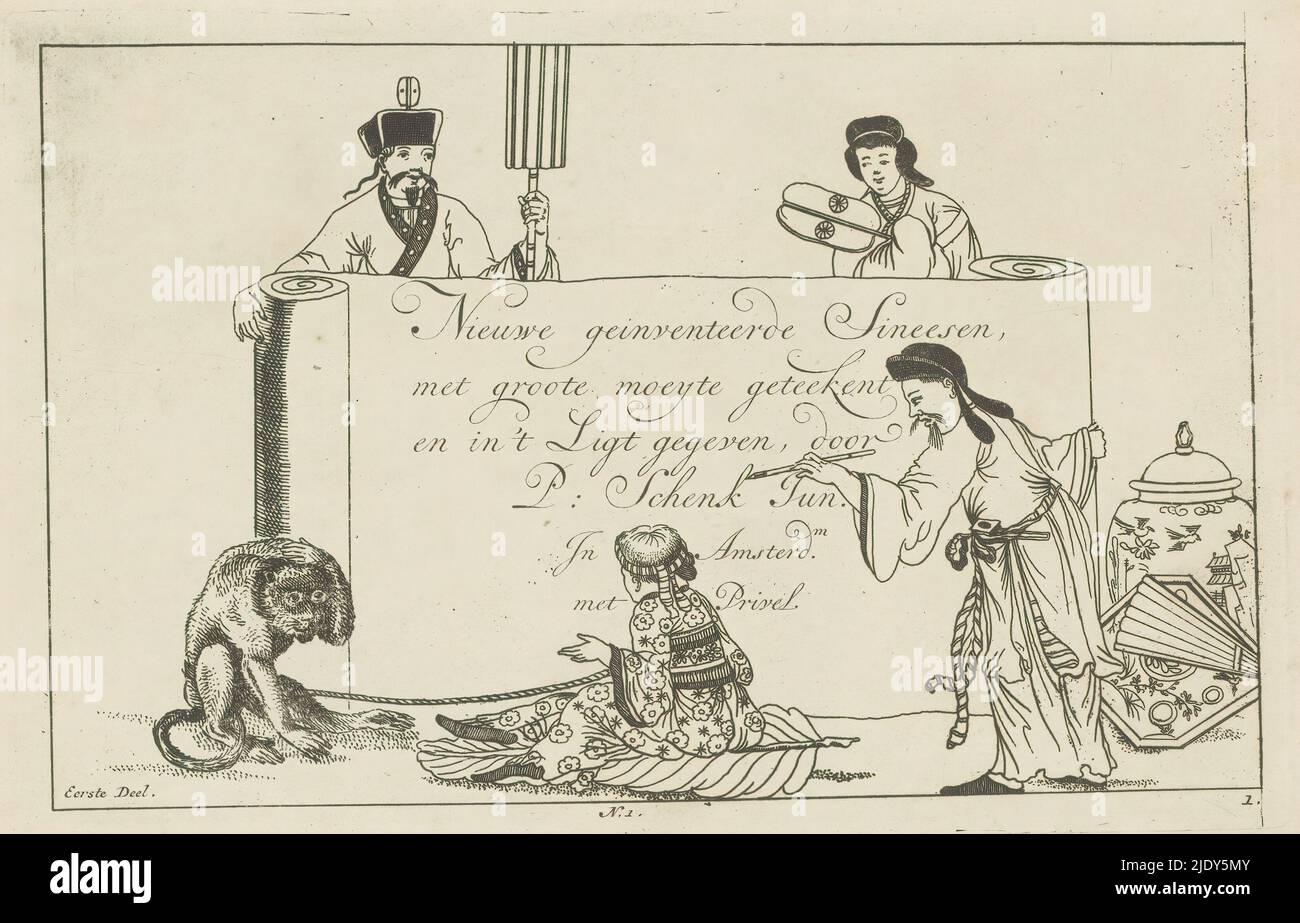 Nieuwe geinventeerde Sineesen,
met groote moeyte geteekent
en in't Ligt gegeven, door
P: Schenk Jun.
In Amsterd.m
met Privel.
Eerste Deel.
N: 1.
1.
alamy
Image ID: 2JDY5MY
www.alamy.com